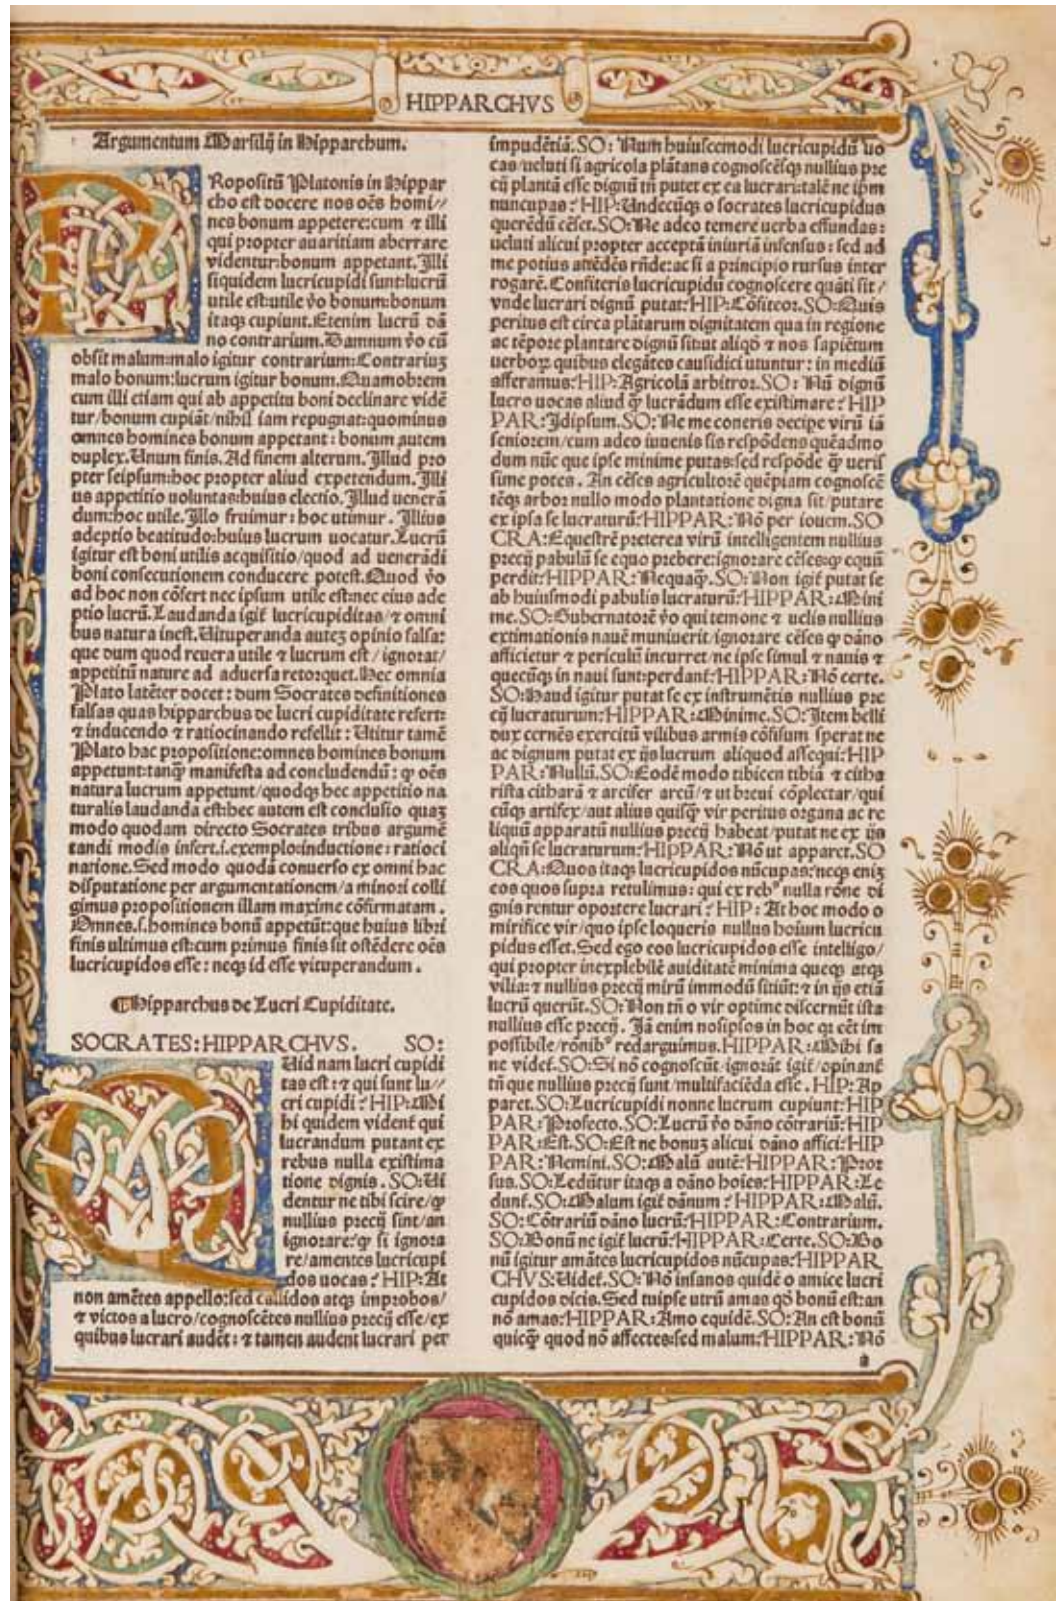 HIPPARCHVS
Argumentum Marsilij in Hipparchum.
PRopositū Platonis in Hippar
cho est docere nos oēs homi//
nes bonum appetere:cum ⁊ illi
qui propter auaritiam aberrare
videntur:bonum appetant.Illi
siquidem lucricupidi sunt:lucrū
utile est:utile ṽo bonum:bonum
itaqꝫ cupiunt.Etenim lucrū dā
no contrarium.Damnum ṽo cū
obsit malum:malo igitur contrarium:Contrariuꝫ
malo bonum:lucrum igitur bonum.Quamobrem
cum illi etiam qui ab appetitu boni declinare vidē
tur/bonum cupiāt/nihil iam repugnat:quominus
omnes homines bonum appetant:bonum autem
duplex.Unum finis.Ad finem alterum.Illud pro
pter seipsum:hoc propter aliud expetendum.Illi
us appetitio voluntas:huius electio.Illud venerā
dum:hoc utile.Illo fruimur:hoc utimur.Illius
adeptio beatitudo:huius lucrum uocatur.Lucrū
igitur est boni utilis acquisitio/quod ad uenerādi
boni consecutionem conducere potest.Quod ṽo
ad hoc non cōfert nec ipsum utile est:nec eius ade
ptio lucrū.Laudanda igit̃ lucricupiditas/⁊ omni
bus natura inest.Uituperanda auteꝫ opinio falsa:
que dum quod reuera utile ⁊ lucrum est/ignorat/
appetitū nature ad aduersa retorquet.Hec omnia
Plato latēter docet:dum Socrates definitiones
falsas quas hipparchus de lucri cupiditate refert:
⁊ inducendo ⁊ ratiocinando refellit:Utitur tamē
Plato hac propositione:omnes homines bonum
appetunt:tanꝙ̃ manifesta ad concludendū:ꝙ oēs
natura lucrum appetunt/quodqꝫ hec appetitio na
turalis laudanda est:hec autem est conclusio quaꝫ
modo quodam directo Socrates tribus argumē
tandi modis infert.i.exemplo:inductione:ratioci
natione.Sed modo quodā conuerso ex omni hac
disputatione per argumentationem/a minori colli
gimus propositionem illam maxime cōfirmatam.
Omnes.s.homines bonū appetūt:que huius libri
finis ultimus est:cum primus finis sit ostēdere oēs
lucricupidos esse:neqꝫ id esse vituperandum.
¶Hipparchus de Lucri Cupiditate.
SOCRATES:HIPPARCHVS. SO:
QUid nam lucri cupidi
tas est:⁊ qui sunt lu//
cri cupidi?HIP:Mi
hi quidem vident̃ qui
lucrandum putant ex
rebus nulla existima
tione dignis.SO:Ui
dentur ne tibi scire/ꝙ
nullius precij sint/an
ignorare:ꝙ si ignora
re/amentes lucricupi
dos uocas?HIP:At
non amētes appello:sed callidos atqꝫ improbos/
⁊ victos a lucro/cognoscētes nullius precij esse/ex
quibus lucrari audēt:⁊ tamen audent lucrari per
impudētiā.SO:Num huiuscemodi lucricupidū uo
cas/ueluti si agricola plātans cognoscēsqꝫ nullius pre
cij plantā esse dignū tn̄ putet ex ea lucrari:talē ne ip̄m
nuncupas?HIP:Undecūqꝫ o socrates lucricupidus
querēdū cēset.SO:Ne adeo temere uerba effundas:
ueluti alicui propter acceptā iniuriā infensus:sed ad
me potius attēdēs rn̄de:ac si a principio rursus inter
rogarē.Confiteris lucricupidū cognoscere quāti sit/
vnde lucrari dignū putat:HIP:Cōfiteor.SO:Quis
peritus est circa plātarum dignitatem qua in regione
ac tēpore plantare dignū sit:ut aliqd̄ ⁊ nos sapiētum
uerboꝝ quibus elegātes causidici utuntur:in mediū
afferamus:HIP:Agricolā arbitror.SO:Nū dignū
lucro uocas aliud ꝙ̃ lucrādum esse existimare?HIP
PAR:Idipsum.SO:Ne me coneris decipe virū iā
seniorem/cum adeo iuuenis sis respōdens quēadmo
dum nūc que ipse minime putas:sed respōde ꝙ̃ ueris
sime potes.An cēses agricultorē quēpiam cognoscē
tēqꝫ arbor nullo modo plantatione digna sit/putare
ex ipsa se lucraturū?HIPPAR:Nō per iouem.SO
CRA:Equestrē preterea virū intelligentem nullius
precij pabulū se equo prebere:ignorare cēses:ꝙ equū
perdit:HIPPAR:Nequaꝙ̃.SO:Non igit̃ putat se
ab huiusmodi pabulis lucraturū:HIPPAR:Mini
me.SO:Gubernatorē ṽo qui temone ⁊ uelis nullius
extimationis nauē muniuerit/ignorare cēses ꝙ dāno
afficietur ⁊ periculū incurret/ne ipse simul ⁊ nauis ⁊
quecūqꝫ in naui sunt:perdant̃:HIPPAR:Nō certe.
SO:Haud igitur putat se ex instrumētis nullius pre
cij lucraturum:HIPPAR:Minime.SO:Item belli
dux cernēs exercitū vilibus armis cōfisum sperat ne
ac dignum putat ex ijs lucrum aliquod assequi:HIP
PAR:Nullū.SO:Eodē modo tibicen tibiā ⁊ citha
rista citharā ⁊ arcifer arcū/⁊ ut breui cōplectar/qui
cūqꝫ artifex/aut alius quisꝙ̃ vir peritus organa ac re
liquū apparatū nullius precij habeat/putat ne ex ijs
aliqn̄ se lucraturum:HIPPAR:Nō ut apparet.SO
CRA:Quos itaqꝫ lucricupidos nūcupas:neqꝫ eniꝫ
eos quos supra retulimus:qui ex reb⁹ nulla rōne di
gnis rentur oportere lucrari?HIP:At hoc modo o
mirifice vir/quo ipse loqueris nullus hoium lucricu
pidus esset.Sed ego eos lucricupidos esse intelligo/
qui propter inexplebilē auiditatē minima queqꝫ atqꝫ
vilia:⁊ nullius precij mirū immodū sitiūt:⁊ in ijs etiā
lucrū querūt.SO:Non tn̄ o vir optime discernūt ista
nullius esse precij.Iā enim nosipsos in hoc qꝛ eēt im
possibile/rōnib⁹ redarguimus.HIPPAR:Mihi sa
ne videt̃.SO:Si nō cognoscūt/ignorāt igit̃/opinant̃
tn̄ que nullius precij sunt/multifaciēda esse.HIP:Ap
paret.SO:Lucricupidi nonne lucrum cupiunt:HIP
PAR:Profecto.SO:Lucrū ṽo dāno cōtrariū:HIP
PAR:Est.SO:Est ne bonuꝫ alicui dāno affici:HIP
PAR:Nemini.SO:Malū autē:HIPPAR:Pror
sus.SO:Ledūtur itaqꝫ a dāno hoies:HIPPAR:Le
dunt̃.SO:Malum igit̃ dānum?HIPPAR:Malū.
SO:Cōtrariū dāno lucrū:HIPPAR:Contrarium.
SO:Bonū ne igit̃ lucrū:HIPPAR:Certe.SO:Bo
nū igitur amātes lucricupidos nūcupas:HIPPAR
CHVS:Uidet̃.SO:Nō insanos quidē o amice lucri
cupidos dicis.Sed tuipse utrū amas qd̄ bonū est:an
nō amas:HIPPAR:Amo equidē.SO:An est bonū
quicꝙ̃ quod nō affectes:sed malum:HIPPAR:Nō
a